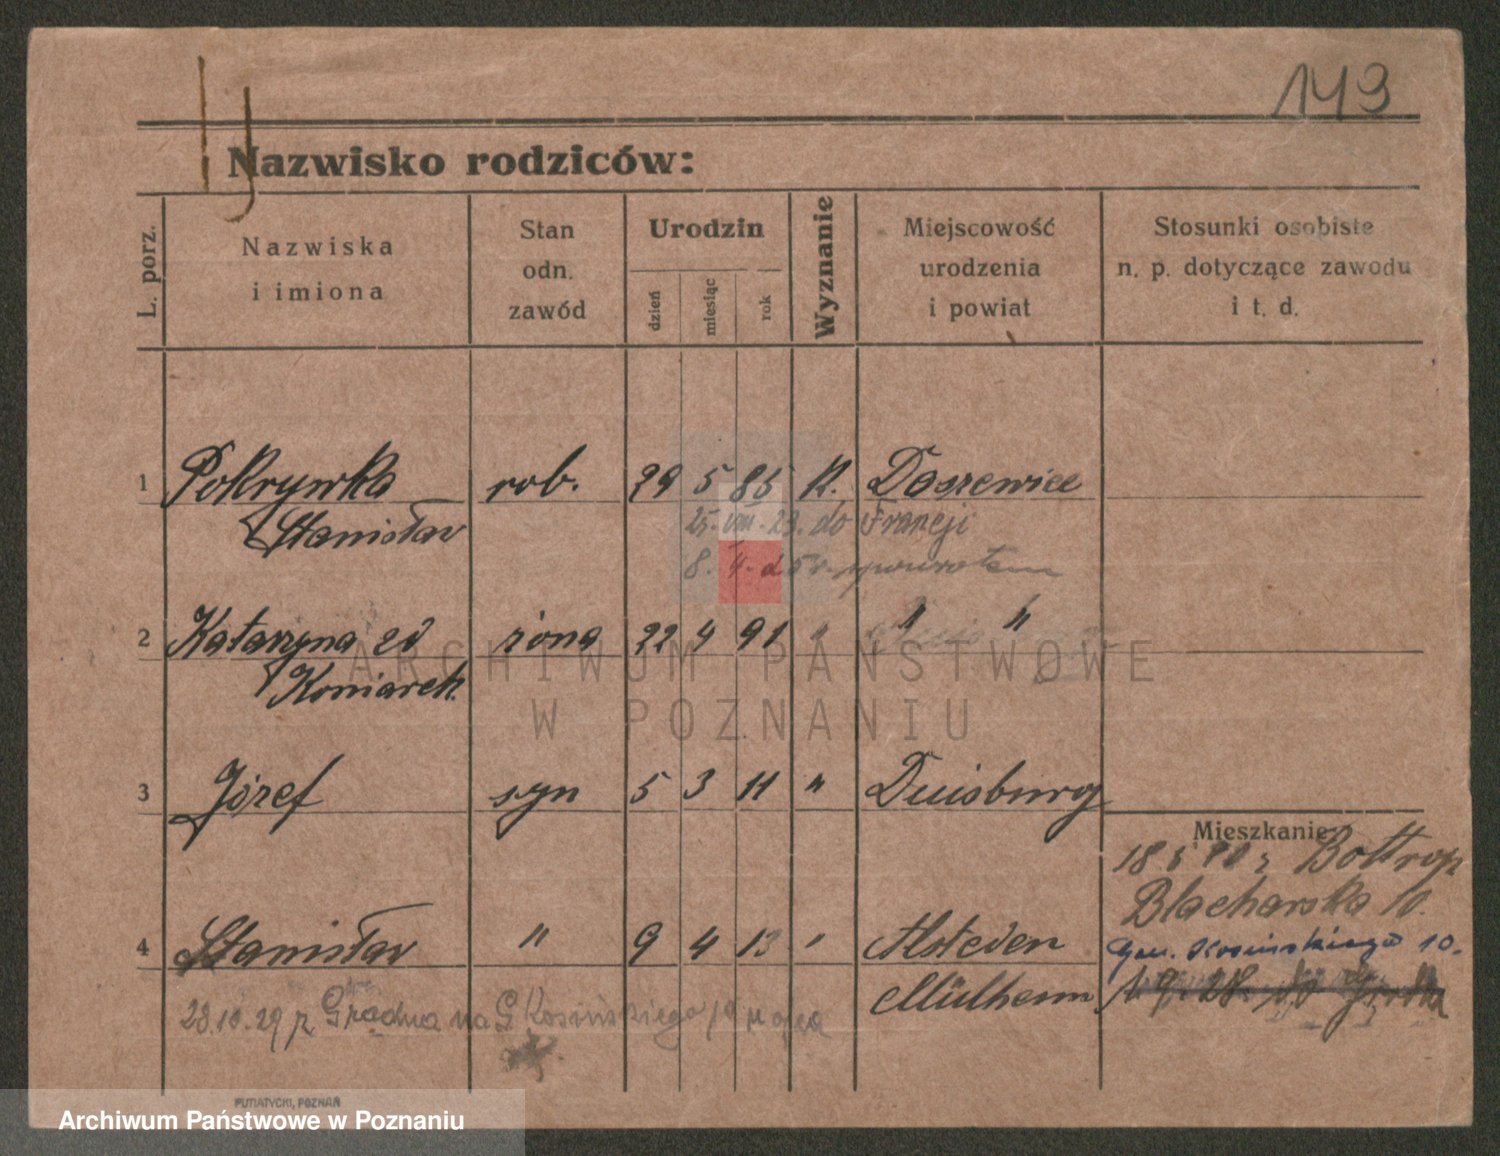 149
Nazwisko rodziców:
L. porz.
Nazwiska
i imiona
Stan
odn.
zawód
Urodzin
dzień
miesiąc
rok
Wyznanie
Miejscowość
urodzenia
i powiat
Stosunki osobiste
n. p. dotyczące zawodu
i t. d.
1 Pokrywka rob. 29 5 85 K. Daszewice
Stanisław 25. VIII. 23. do Francji
8. 4. spowrotem
2 Katarzyna żona 22 4 91 " " "
Koniarek
3 Józef syn 5 3 11 " Duisburg
Mieszkanie
18 r Bottrop
Blacharska 10.
4 Stanisław " 9 4 13 " Alsteden
Gen. Kosińskiego 10.
Mülheim
28.10.29 na G Kosińskiego
PUTIATYCKI, POZNAŃ
ARCHIWUM PAŃSTWOWE
W POZNANIU
Archiwum Państwowe w Poznaniu